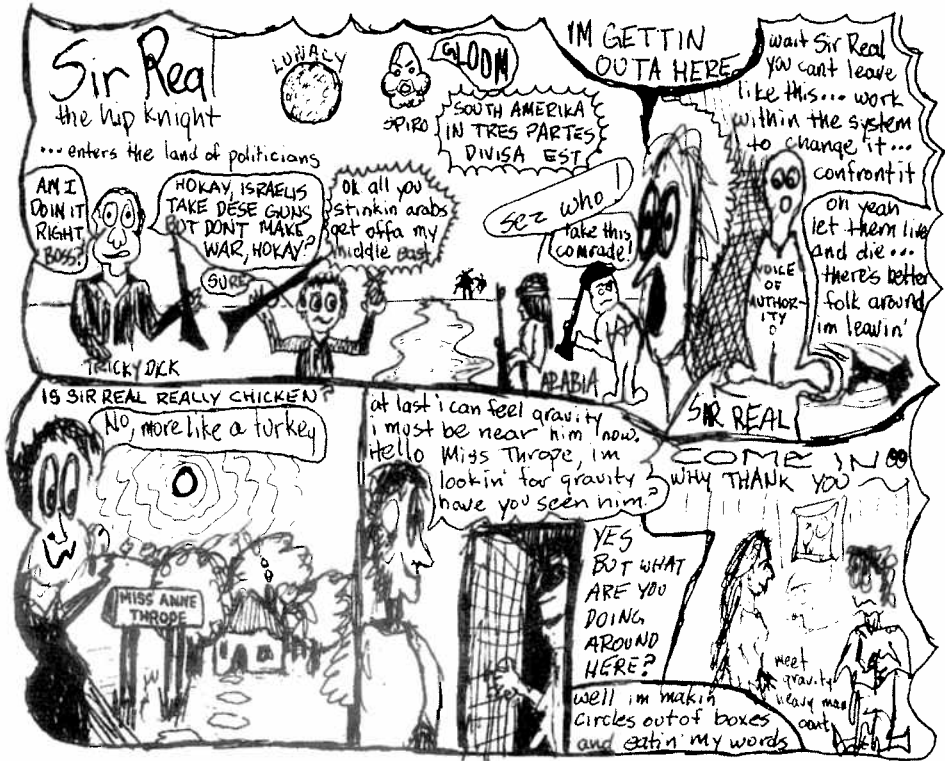 Sir Real
the hip knight
... enters the land of politicians
LUNACY
SPIRO
GLOOM
SOUTH AMERIKA
IN TRES PARTES
DIVISA EST
AM I
DOIN IT
RIGHT
BOSS?
HOKAY, ISRAELIS
TAKE DESE GUNS
BUT DONT MAKE
WAR, HOKAY?
SURE
Ok all you
stinkin arabs
get offa my
middle East
TRICKY DICK
sez who!
take this
comrade!
ARABIA
IM GETTIN
OUTA HERE
wait Sir Real
you cant leave
like this... work
within the system
to change it...
confront it
VOICE
OF
AUTHOR-
ITY
oh yeah
let them live
and die...
there's better
folk around
im leavin'
SIR REAL
IS SIR REAL REALLY CHICKEN?
No, more like a turkey
MISS ANNE
THROPE
at last i can feel gravity
i must be near him now.
Hello Miss Thrope, im
lookin' for gravity
have you seen him?
YES
BUT WHAT
ARE YOU
DOING
AROUND
HERE?
well im makin
circles out of boxes
and eatin' my words
COME IN
WHY THANK YOU
meet
gravity
heavy man